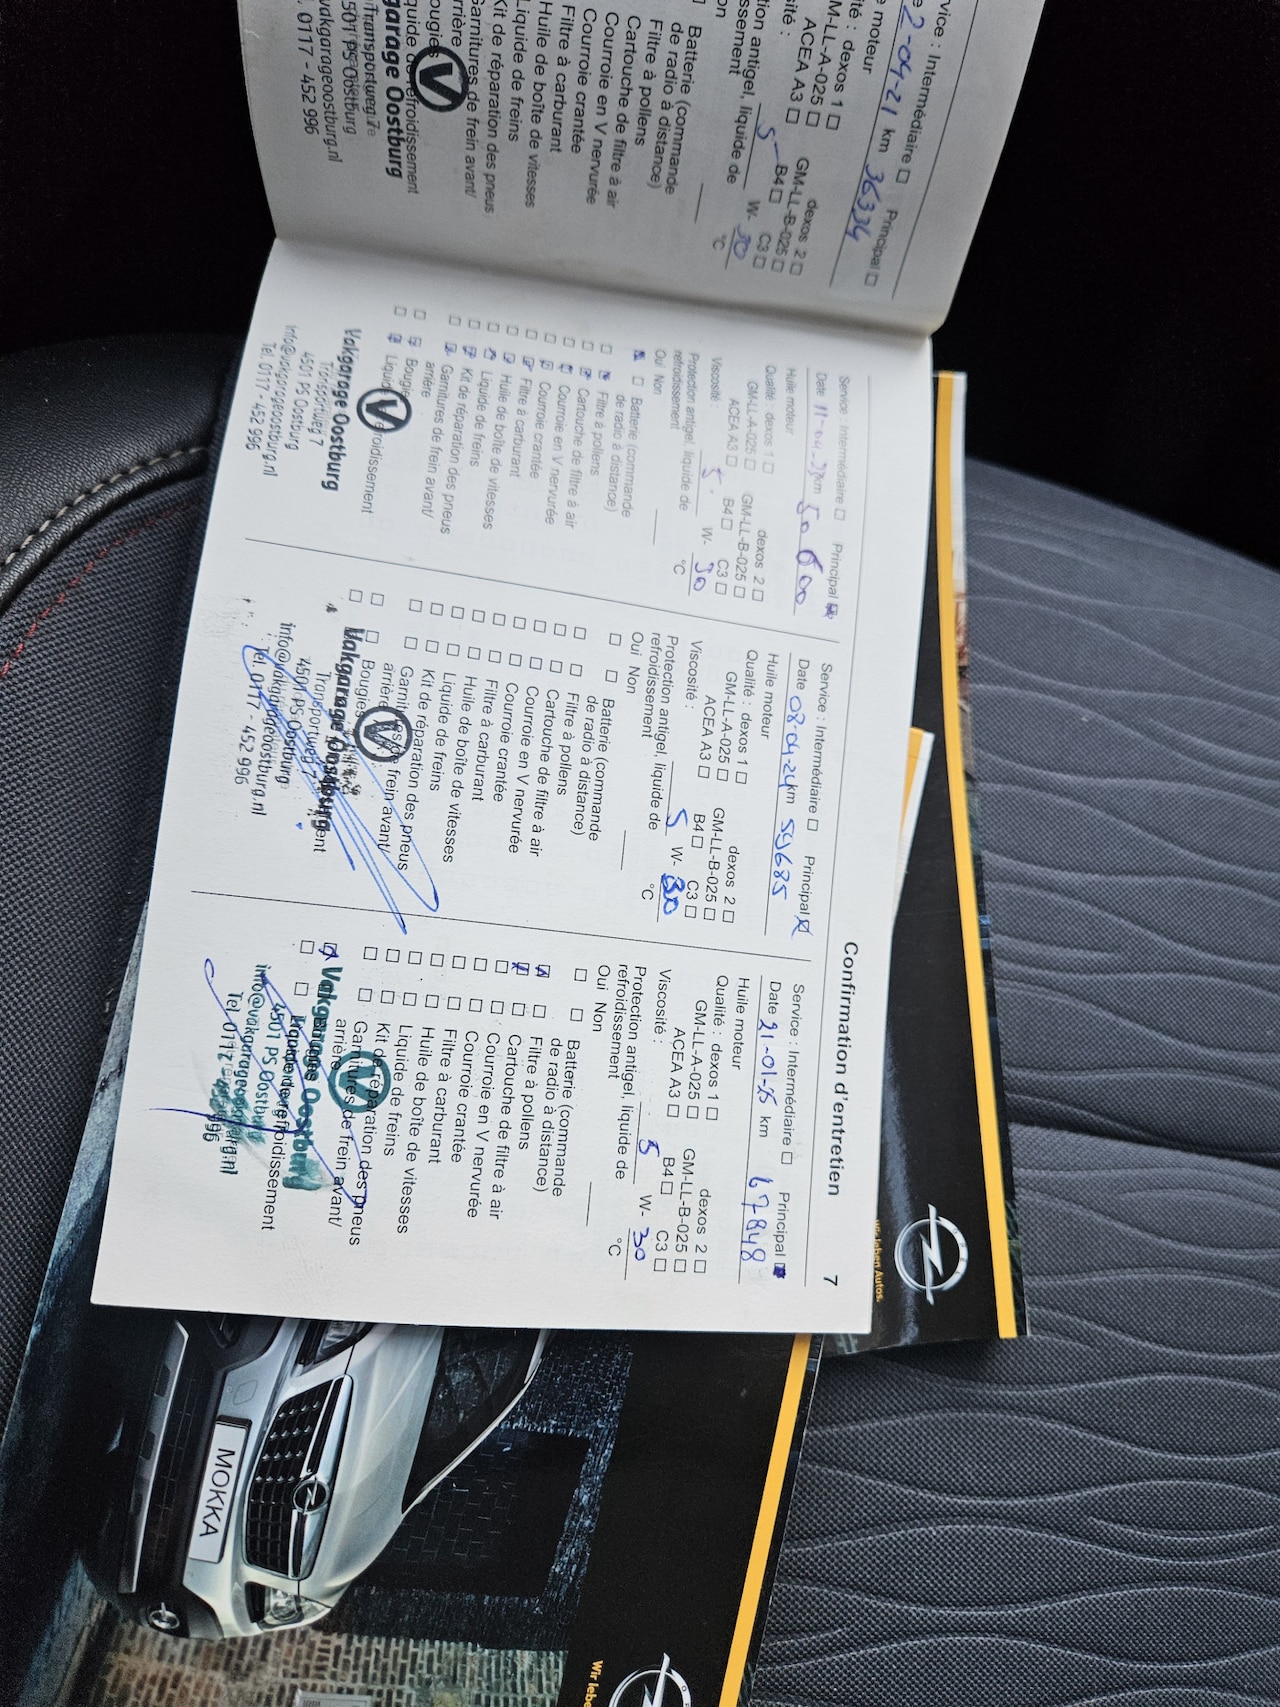 Confirmation d'entretien
7
Service : Intermédiaire □ Principal □
2-04-21 km 36334
moteur
dexos 1 □ dexos 2 □
GM-LL-A-025 □ GM-LL-B-025 □
ACEA A3 □ B4 □ C3 □
5 W- 30
antigel, liquide de
°C
Batterie (commande
de radio à distance)
Filtre à pollens
Cartouche de filtre à air
Courroie en V nervurée
Courroie crantée
Filtre à carburant
Huile de boîte de vitesses
Liquide de freins
Kit de réparation des pneus
Garnitures de frein avant/
arrière
Oostburg
4501 PS Oostburg
vakgarageoostburg.nl
0117 - 452 996
Service : Intermédiaire □ Principal ☒
Date 11-04- km 50600
Huile moteur
Qualité : dexos 1 □ dexos 2 □
GM-LL-A-025 □ GM-LL-B-025 □
ACEA A3 □ B4 □ C3 □
Viscosité : 5 W- 30
Protection antigel, liquide de
refroidissement °C
Oui Non
Batterie (commande
de radio à distance)
Filtre à pollens
Cartouche de filtre à air
Courroie en V nervurée
Courroie crantée
Filtre à carburant
Huile de boîte de vitesses
Liquide de freins
Kit de réparation des pneus
Garnitures de frein avant/
arrière
Bougies
Vakgarage Oostburg
Transportweg 7
4501 PS Oostburg
info@vakgarageoostburg.nl
Tel. 0117 - 452 996
Service : Intermédiaire □ Principal ☒
Date 08-04-24 km 59685
Huile moteur
Qualité : dexos 1 □ dexos 2 □
GM-LL-A-025 □ GM-LL-B-025 □
ACEA A3 □ B4 □ C3 □
Viscosité : 5 W- 30
Protection antigel, liquide de
refroidissement °C
Oui Non
Batterie (commande
de radio à distance)
Filtre à pollens
Cartouche de filtre à air
Courroie en V nervurée
Courroie crantée
Filtre à carburant
Huile de boîte de vitesses
Liquide de freins
Kit de réparation des pneus
Garnitures de frein avant/
arrière
Bougies
Vakgarage Oostburg
Transportweg 7
4501 PS Oostburg
info@vakgarageoostburg.nl
Tel. 0117 - 452 996
Service : Intermédiaire □ Principal ☒
Date 21-01-25 km 67848
Huile moteur
Qualité : dexos 1 □ dexos 2 □
GM-LL-A-025 □ GM-LL-B-025 □
ACEA A3 □ B4 □ C3 □
Viscosité : 5 W- 30
Protection antigel, liquide de
refroidissement °C
Oui Non
Batterie (commande
de radio à distance)
Filtre à pollens
Cartouche de filtre à air
Courroie en V nervurée
Courroie crantée
Filtre à carburant
Huile de boîte de vitesses
Liquide de freins
Kit de réparation des pneus
Garnitures de frein avant/
arrière
Liquide de refroidissement
Oostburg
4501 PS Oostburg
info@vakgarageoostburg.nl
Wir leben Autos.
MOKKA